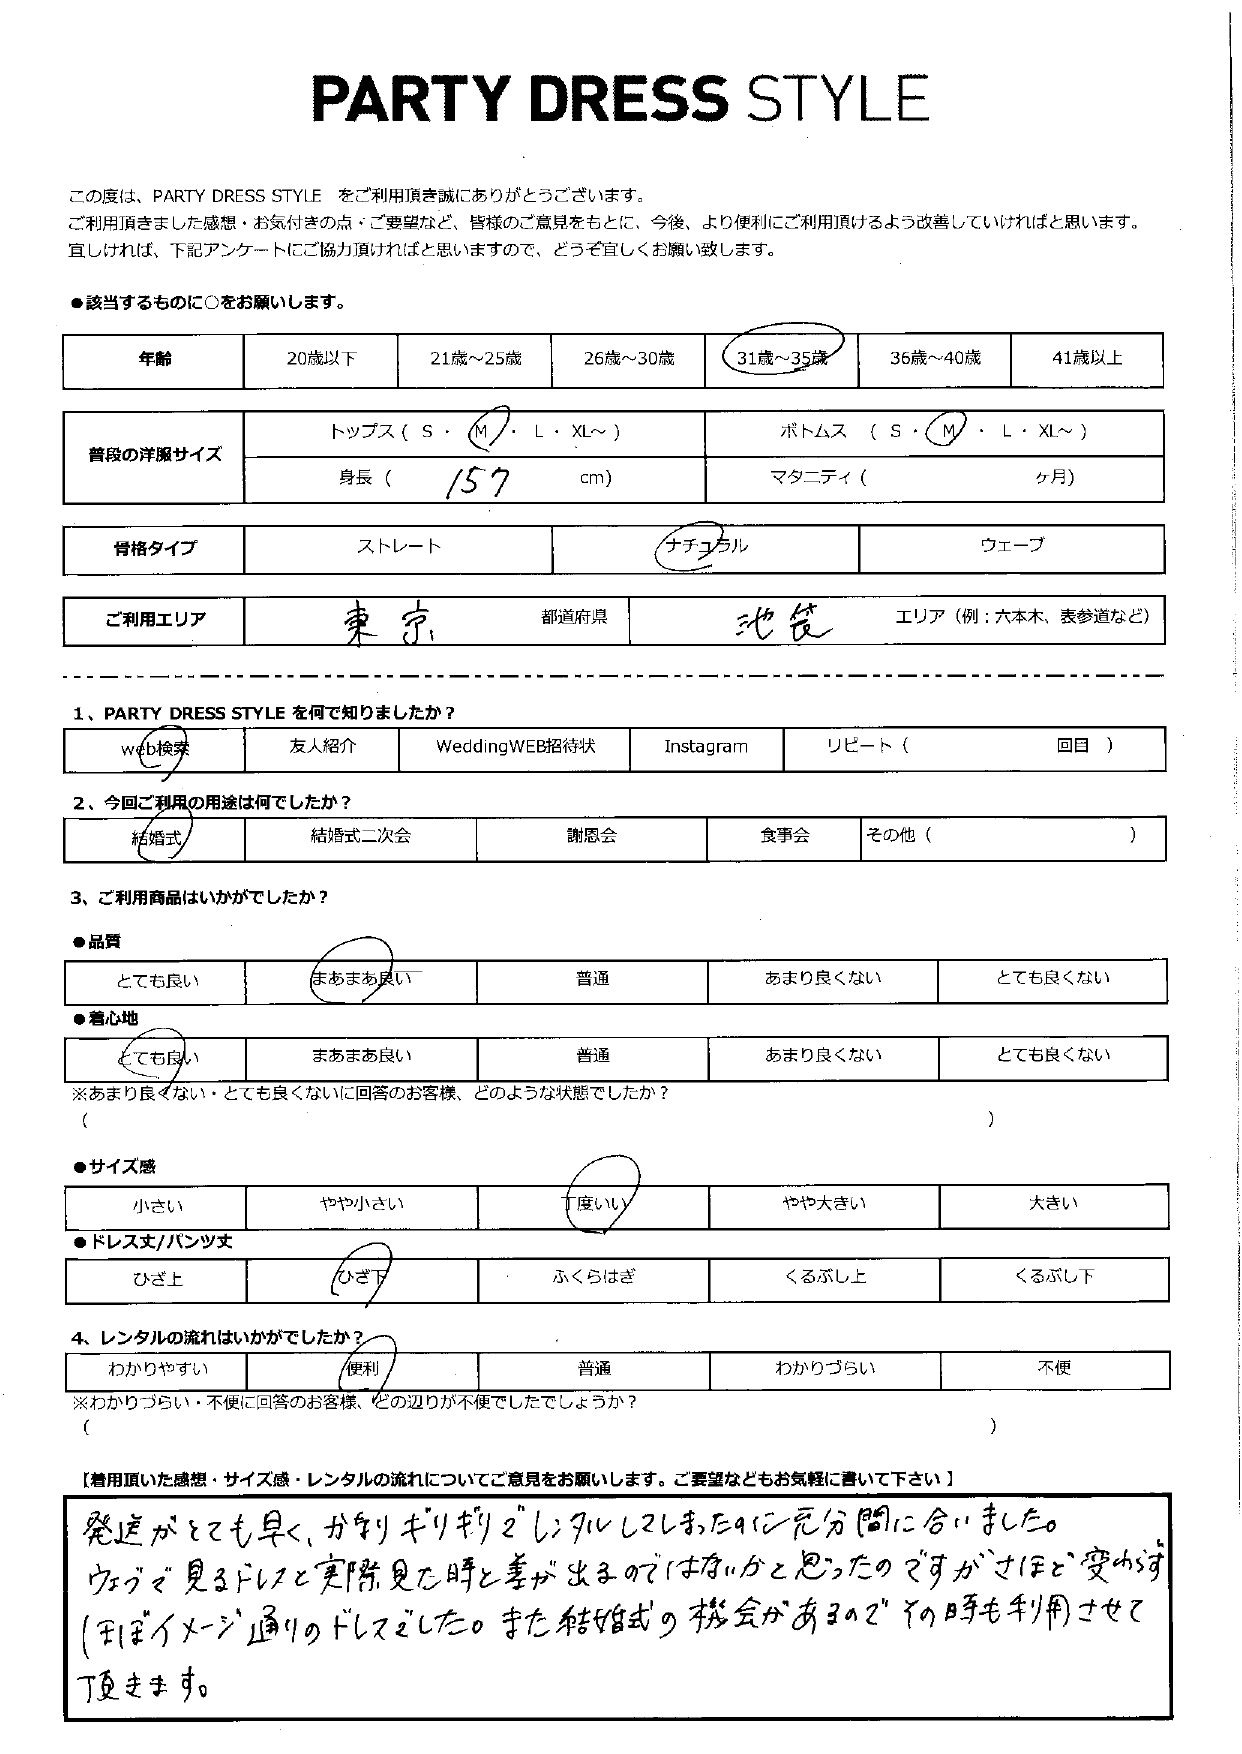 PARTY DRESS STYLE
この度は、PARTY DRESS STYLE をご利用頂き誠にありがとうございます。
ご利用頂きました感想・お気付きの点・ご要望など、皆様のご意見をもとに、今後、より便利にご利用頂けるよう改善していければと思います。
宜しければ、下記アンケートにご協力頂ければと思いますので、どうぞ宜しくお願い致します。
●該当するものに○をお願いします。
年齢 20歳以下 21歳～25歳 26歳～30歳 31歳～35歳 36歳～40歳 41歳以上
普段の洋服サイズ トップス ( S ・ M ・ L ・ XL～ ) ボトムス ( S ・ M ・ L ・ XL～ )
身長 ( 157 cm) マタニティ ( ヶ月)
骨格タイプ ストレート ナチュラル ウェーブ
ご利用エリア 東京 都道府県 池袋 エリア（例：六本木、表参道など）
1、PARTY DRESS STYLE を何で知りましたか？
web検索 友人紹介 WeddingWEB招待状 Instagram リピート ( 回目 )
2、今回ご利用の用途は何でしたか？
結婚式 結婚式二次会 謝恩会 食事会 その他 ( )
3、ご利用商品はいかがでしたか？
●品質
とても良い まあまあ良い 普通 あまり良くない とても良くない
●着心地
とても良い まあまあ良い 普通 あまり良くない とても良くない
※あまり良くない・とても良くないに回答のお客様、どのような状態でしたか？
( )
●サイズ感
小さい やや小さい 丁度いい やや大きい 大きい
●ドレス丈/パンツ丈
ひざ上 ひざ下 ふくらはぎ くるぶし上 くるぶし下
4、レンタルの流れはいかがでしたか？
わかりやすい 便利 普通 わかりづらい 不便
※わかりづらい・不便に回答のお客様、どの辺りが不便でしたでしょうか？
( )
【着用頂いた感想・サイズ感・レンタルの流れについてご意見をお願いします。ご要望などもお気軽に書いて下さい 】
発送がとても早く、かなりギリギリでレンタルしてしまったのに充分間に合いました。
ウェブで見るドレスと実際見た時と差が出るのではないかと思ったのですがさほど変わらず
ほぼイメージ通りのドレスでした。また結婚式の機会があるのでその時も利用させて
頂きます。